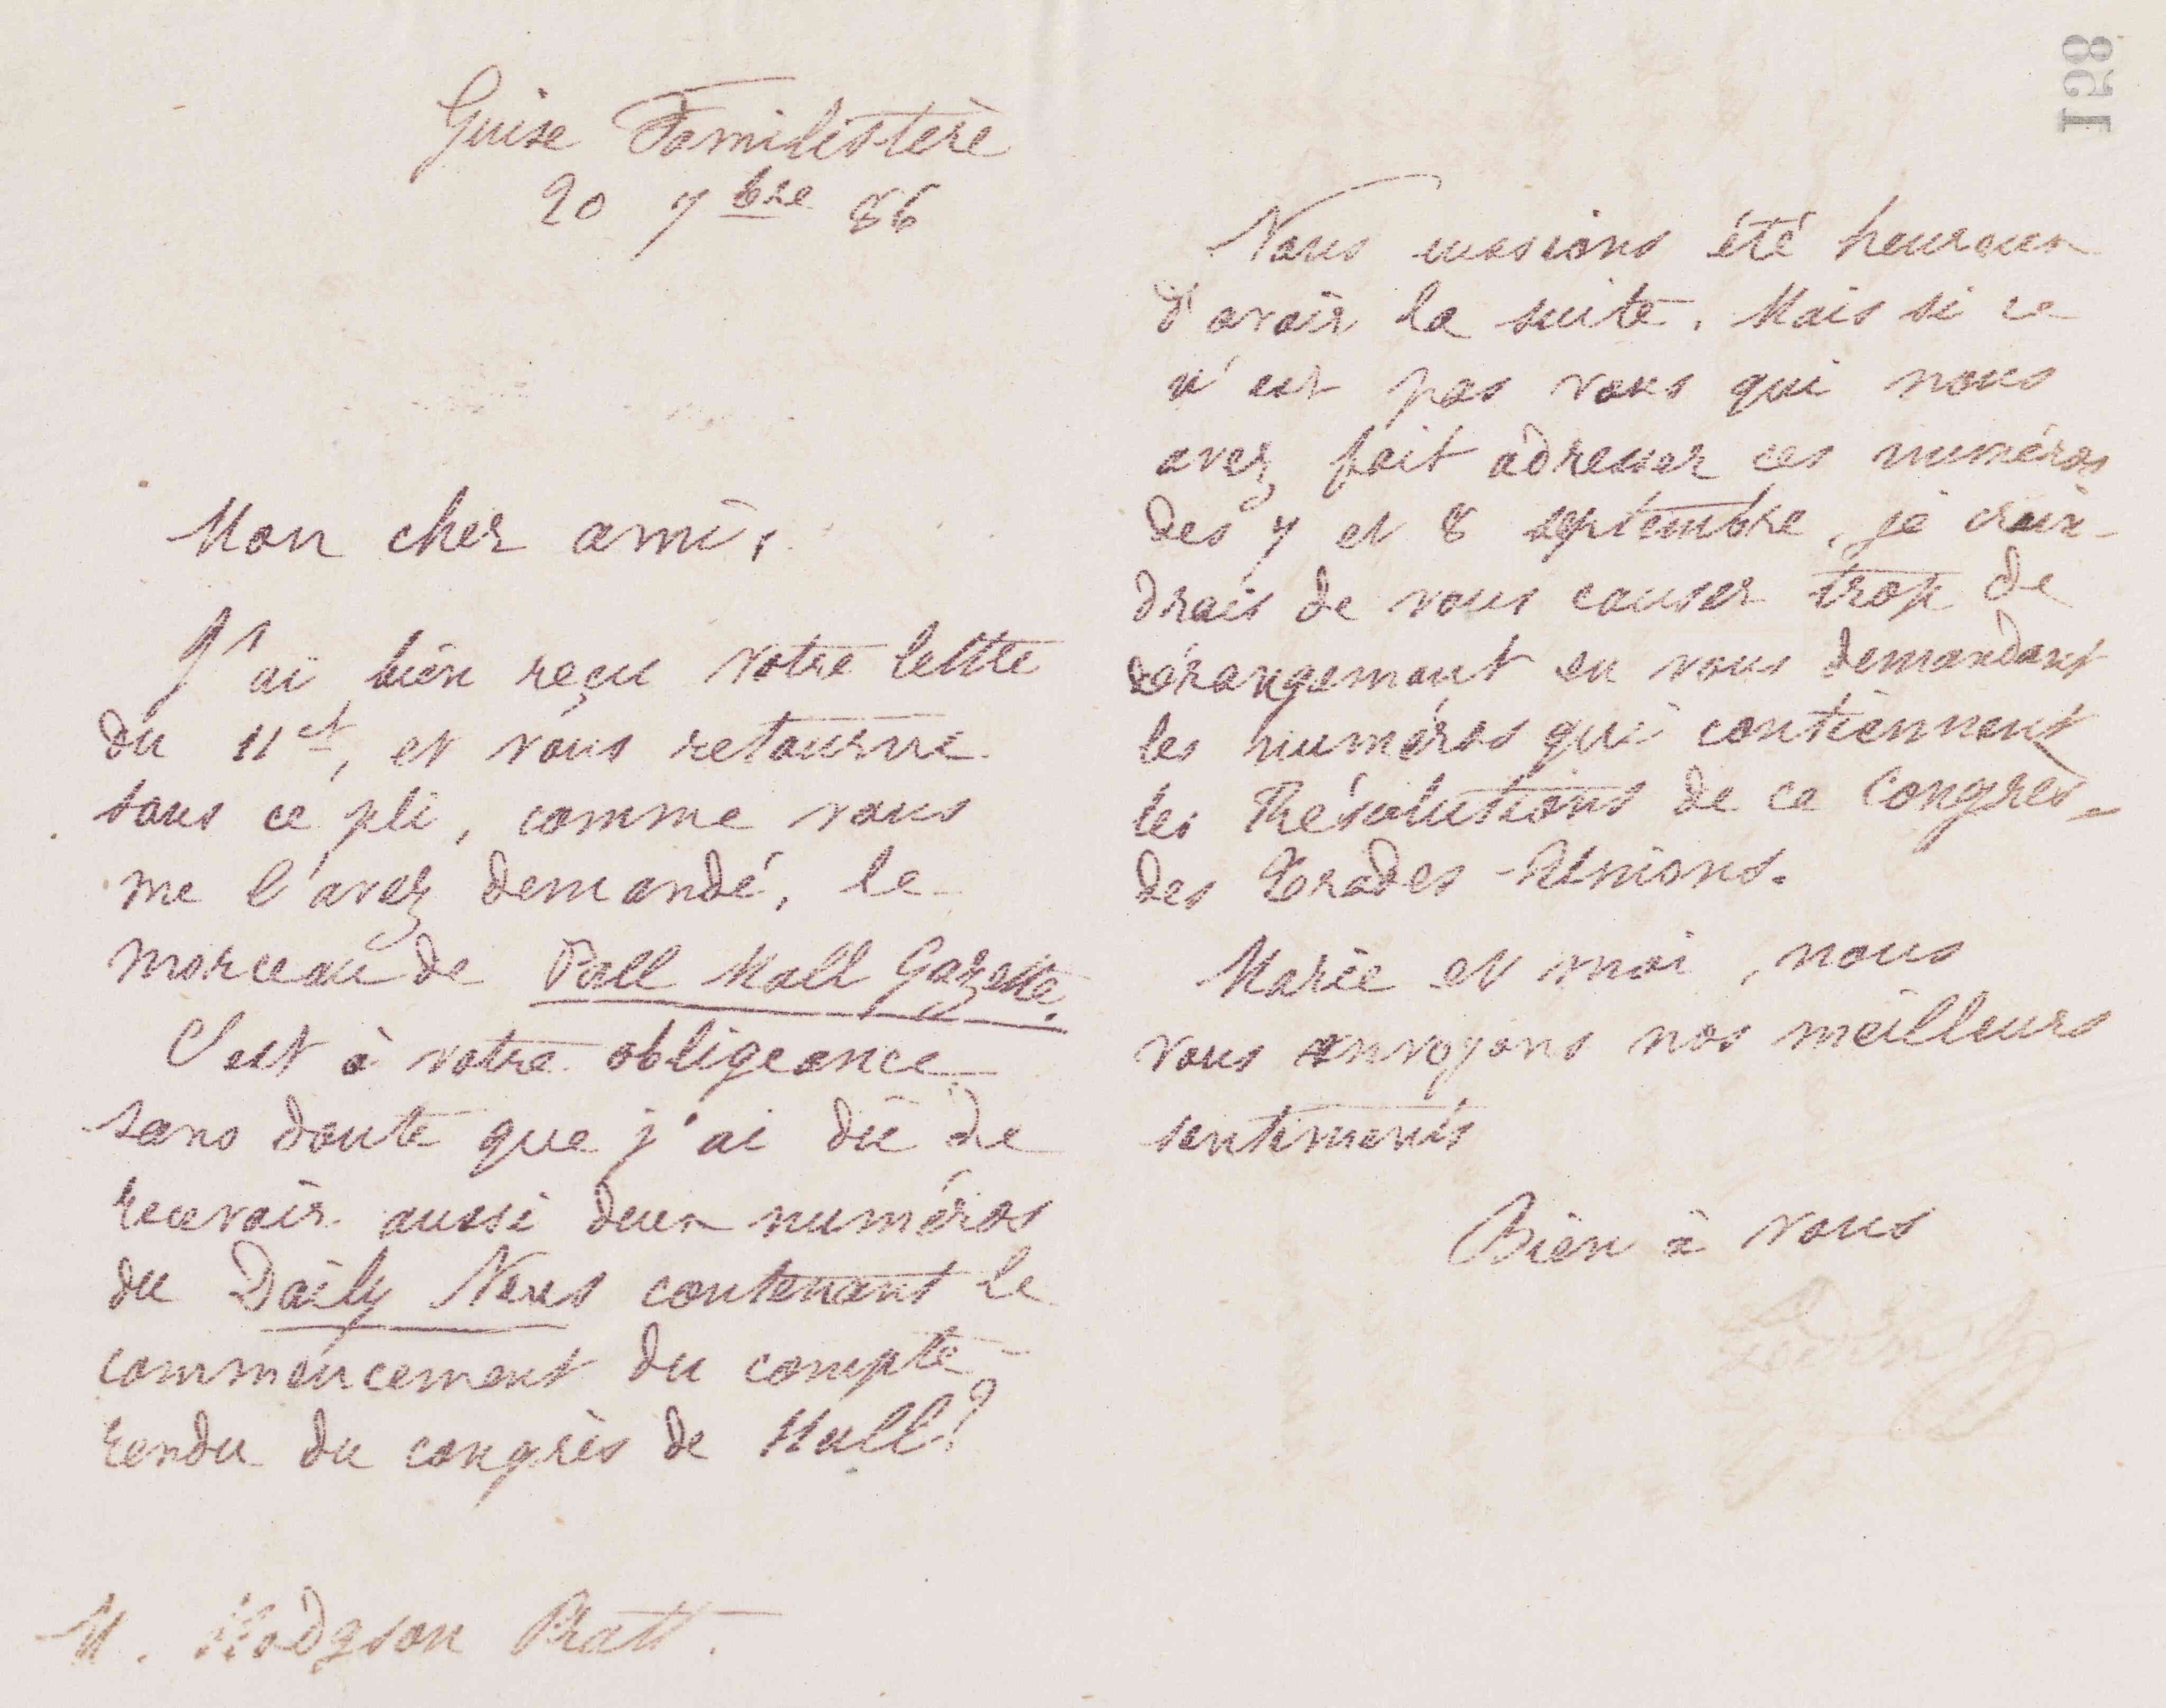 Guise Familistère
20 7bre 86
Mon cher ami,
J'ai bien reçu votre lettre
du 11 ct, et vous retourne
sous ce pli, comme vous
me l'avez demandé, le
morceau de Pall Mall Gazette.
C'est à votre obligeance
sans doute que j'ai dû de
recevoir aussi deux numéros
du Daily News contenant le
commencement du compte-
rendu du congrès de Hull?
M. Hodgson Pratt.
158
Nous eussions été heureux
d'avoir la suite. Mais si ce
n'est pas vous qui nous
avez fait adresser ces numéros
des 7 et 8 septembre, je crain-
drais de vous causer trop de
dérangement en vous demandant
les numéros qui contiennent
les Résolutions de ce Congrès
des Trades-Unions.
Marie et moi, nous
vous envoyons nos meilleurs
sentiments
Bien à vous